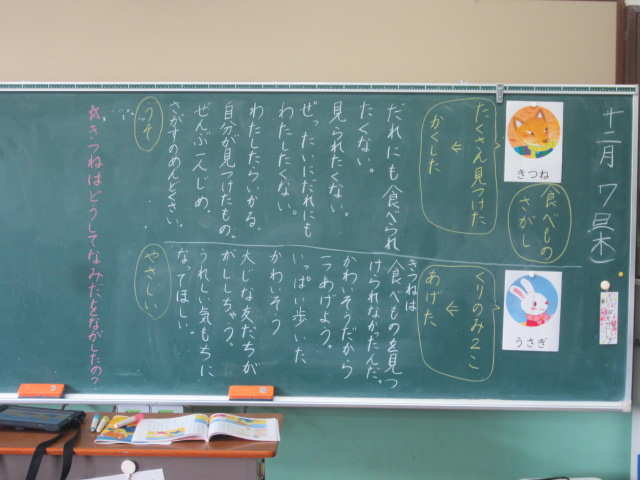 十二月 7日(木)
きつね
食べもの
さがし
うさぎ
たくさん見つけた
⇓
かくした
だれにも食べられ
たくない。
見られたくない。
ぜったいにだれにも
わたしたくない。
わたしたらいかる。
自分が見つけたもの。
ぜんぶ一人じめ。
さがすのめんどくさい。
うそ
くりのみ2こ
⇓
あげた
きつねは
食べものを見つ
けられなかたんだ。
かわいそうだから
一つあげよう。
いっぱい歩いた
かわいそう
大じな友だちが
がししちゃう。
うれしい気もちに
なってほしい。
やさしい
☆きつねはどうしてなみだをながしたの?